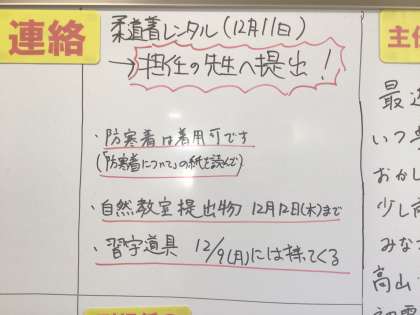 連絡
柔道着レンタル(12月11日)
→担任の先生へ提出!
・防寒着は着用可です
(「防寒着について」の紙を読んで)
・自然教室提出物 12月12日(木)まで
・習字道具 12/9(月)には持ってくる
主任
最近
いつ
おかし
少し
みな
高山